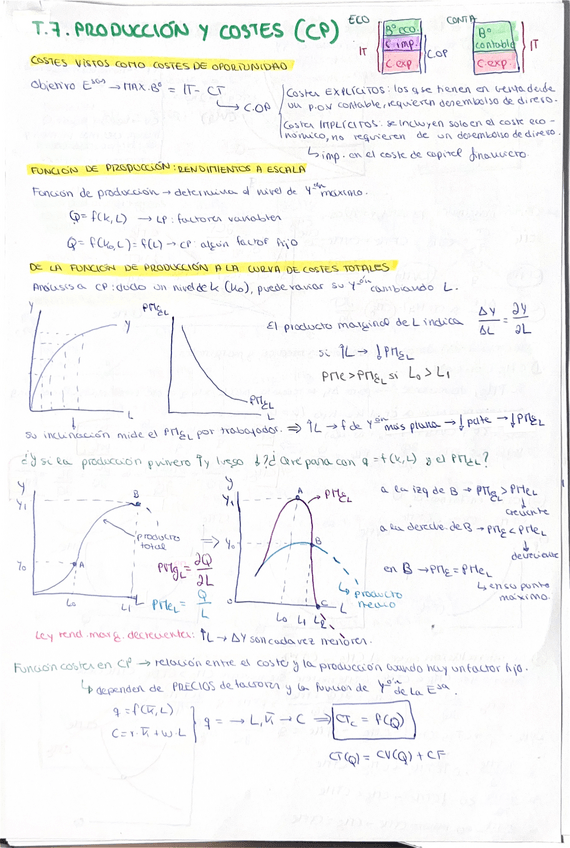 T.7. PRODUCCIÓN Y COSTES (CP)
ECO
IT
Bº eco.
C.imp.
C.exp
C.OP
CONTA
Bº contable
C.exp.
IT
COSTES VISTOS COMO COSTES DE OPORTUNIDAD
Objetivo Esas → MAX. Bº = IT - CT
↳ C.OP
Costes EXPLÍCITOS: los que se tienen en cuenta desde
un p.o.v contable, requieren desembolso de dinero.
Costes IMPLÍCITOS: se incluyen solo en el coste eco-
nómico, no requieren de un desembolso de dinero.
↳ imp. en el coste de capital financiero.
FUNCIÓN DE PRODUCCIÓN: RENDIMIENTOS A ESCALA
Función de producción → determina el nivel de Yoin máximo.
Q = f(K,L) → LP: factores variables
Q = f(K0,L) = f(L) → CP algún factor fijo
DE LA FUNCIÓN DE PRODUCCIÓN A LA CURVA DE COSTES TOTALES
Análisis a CP: dado un nivel de K (K0), puede variar su Yoin cambiando L.
Y
Y
L
PMgL
PMgL
L
El producto marginal de L indica ΔY/ΔL = ∂Y/∂L
si ↑L → ↓PMgL
PMe > PMgL si L0 > L1
su inclinación mide el PMgL por trabajador. ⇒ ↑L → f de Yoin más plana → ↓ pdte → ↓PMgL
¿Y si la producción primero ↑ y luego ↓? ¿Qué pasa con q = f(K,L) y el PMgL?
Y
Y1
Y0
A
B
producto total
L0
L1
L
PMgL = ∂Q/∂L
PMeL = Q/L
⇒
Y
Y1
Y0
0
A
PMgL
B
producto medio
C
L0
L1
L
a la izq de B → PMgL > PMeL
↓
creciente
a la derecha de B → PMg < PMeL
↓
decreciente
en B → PMg = PMeL
↳ en su punto máximo.
Ley rend. marg. decrecientes: ↑L → ΔY son cada vez menores.
Función costes en CP → relación entre el coste y la producción cuando hay un factor fijo.
↳ dependen de PRECIOS de factores y la función de Yoin de la Esa.
q = f(K̄,L)
C = r·K̄ + w·L
q = → L, K̄ → C ⇒ CTc = P(Q)
CT(Q) = CV(Q) + CF